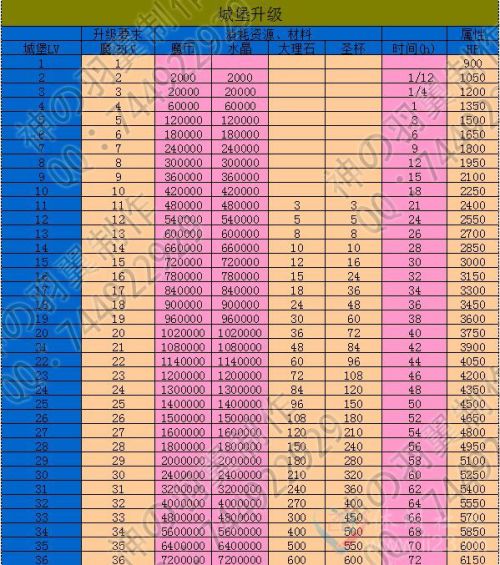 城堡升级
升级要求 消耗资源、材料 属性
城堡LV 魔 LV 魔币 水晶 大理石 圣杯 时间(h) HP
1 1 900
2 2 2000 2000 1/12 1050
3 3 20000 20000 1/4 1200
4 4 60000 60000 1 1350
5 5 120000 120000 3 1500
6 6 180000 180000 6 1650
7 7 240000 240000 9 1800
8 8 300000 300000 12 1950
9 9 360000 360000 15 2100
10 10 420000 420000 18 2250
11 11 480000 480000 3 3 21 2400
12 12 540000 540000 5 5 24 2550
13 13 600000 600000 8 8 26 2700
14 14 660000 660000 10 10 28 2850
15 15 720000 720000 12 16 30 3000
16 16 780000 780000 15 24 32 3150
17 17 840000 840000 18 36 34 3300
18 18 900000 900000 24 48 36 3450
19 19 960000 960000 30 60 38 3600
20 20 1020000 1020000 36 72 40 3750
21 21 1080000 1080000 48 84 42 3900
22 22 1140000 1140000 60 96 44 4050
23 23 1200000 1200000 72 108 46 4200
24 24 1300000 1300000 84 120 48 4350
25 25 1400000 1400000 96 150 50 4500
26 26 1500000 1500000 108 180 52 4650
27 27 1600000 1600000 120 210 54 4800
28 28 1800000 1800000 150 240 56 4950
29 29 2000000 2000000 180 280 58 5100
30 30 2400000 2400000 210 320 60 5250
31 31 3200000 3200000 240 360 62 5400
32 32 4000000 4000000 270 400 64 5550
33 33 4800000 4800000 300 450 66 5700
34 34 5600000 5600000 400 500 68 5850
35 35 6400000 6400000 500 550 70 6000
36 36 7200000 7200000 600 600 72 6150
神の羽翼制作
QQ：744922929